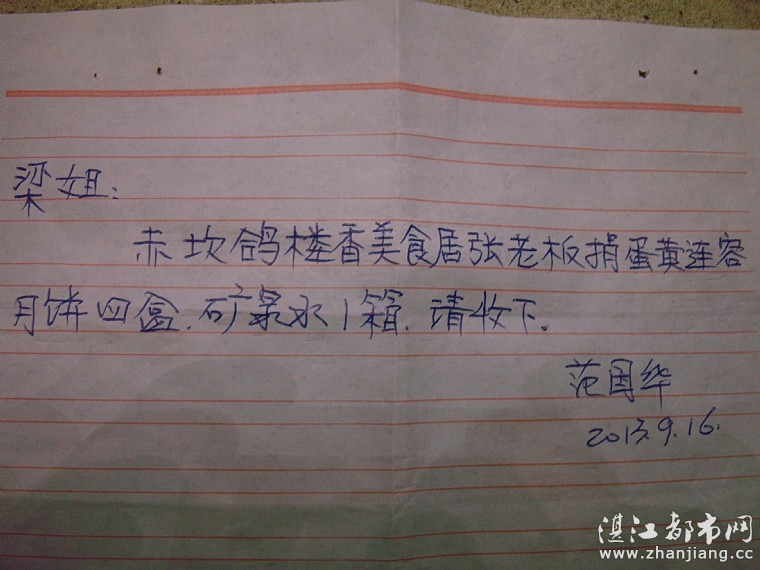 梁姐：
赤坎鸽楼香美食居张老板捐蛋黄连容
月饼四盒、矿泉水1箱，请收下。
范国华
2013.9.16.
湛江都市网
www.zhanjiang.cc